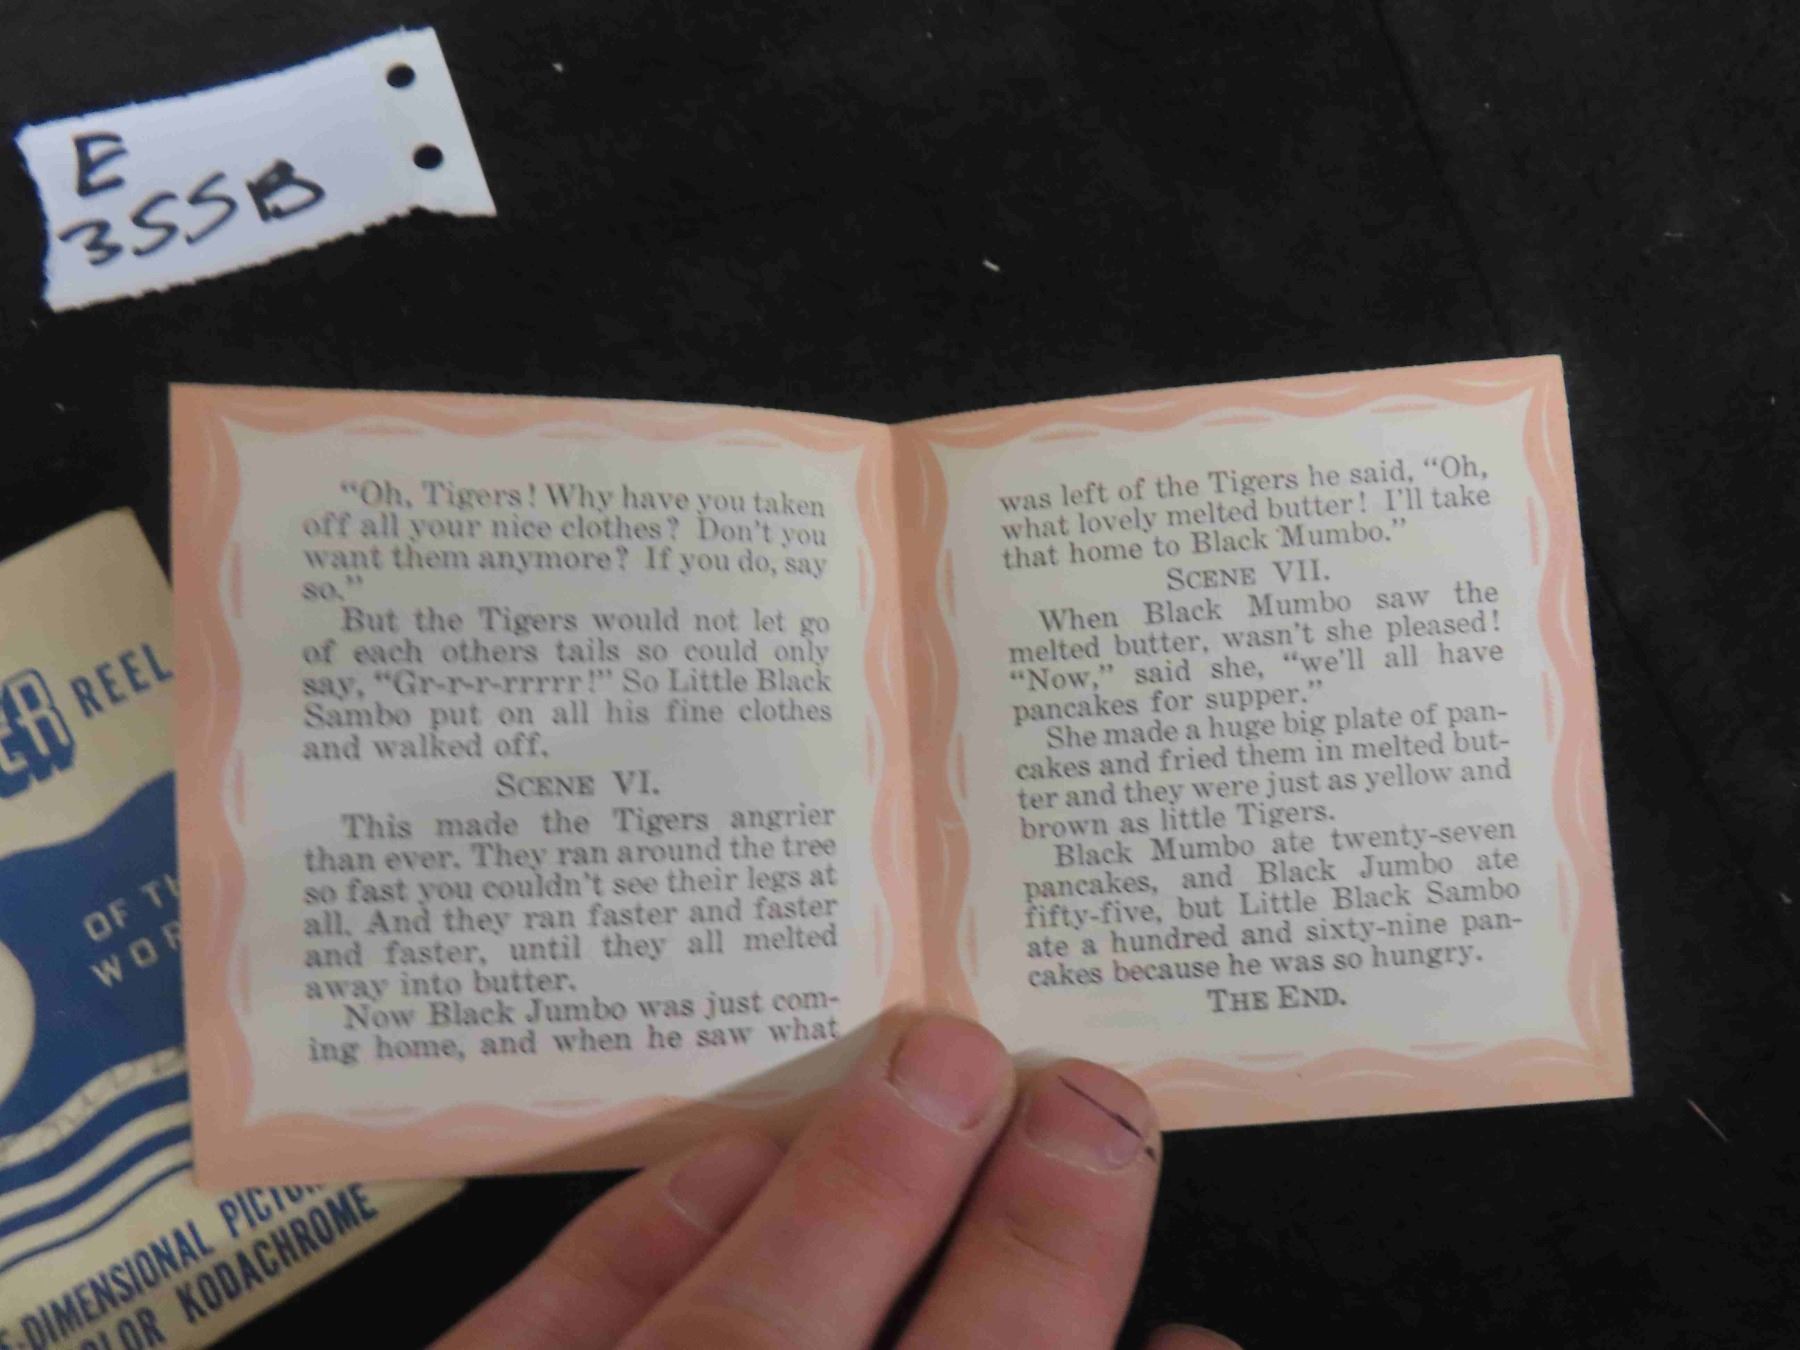 E
355B
"Oh, Tigers! Why have you taken
off all your nice clothes? Don't you
want them anymore? If you do, say
so."
But the Tigers would not let go
of each others tails so could only
say, "Gr-r-r-rrrrr!" So Little Black
Sambo put on all his fine clothes
and walked off.
SCENE VI.
This made the Tigers angrier
than ever. They ran around the tree
so fast you couldn't see their legs at
all. And they ran faster and faster
and faster, until they all melted
away into butter.
Now Black Jumbo was just com-
ing home, and when he saw what
was left of the Tigers he said, "Oh,
what lovely melted butter! I'll take
that home to Black Mumbo."
SCENE VII.
When Black Mumbo saw the
melted butter, wasn't she pleased!
"Now," said she, "we'll all have
pancakes for supper."
She made a huge big plate of pan-
cakes and fried them in melted but-
ter and they were just as yellow and
brown as little Tigers.
Black Mumbo ate twenty-seven
pancakes, and Black Jumbo ate
fifty-five, but Little Black Sambo
ate a hundred and sixty-nine pan-
cakes because he was so hungry.
THE END.
REEL
OF
KODACHROME